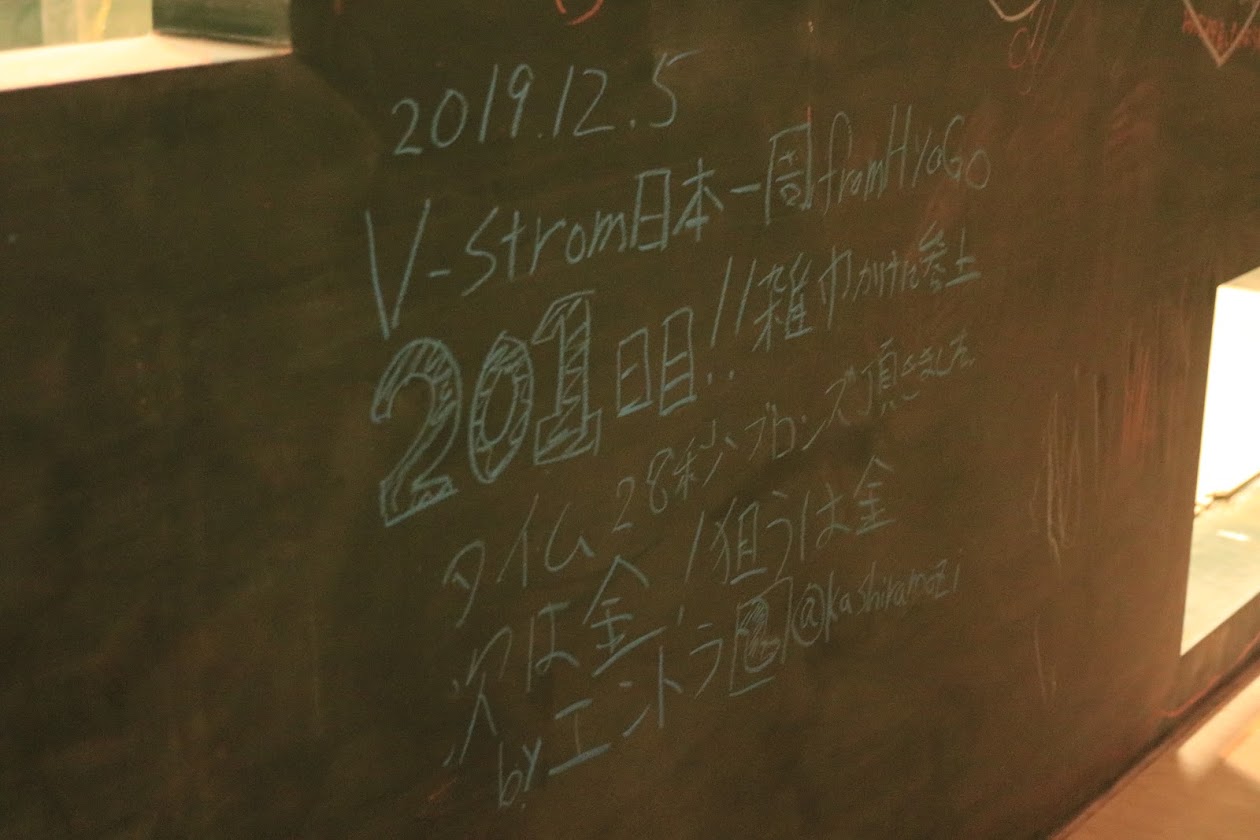 2019.12.5
V-Strom日本一周fromHyoGo
201日目!!雑巾かけに参上
タイム28秒ブロンズ頂きました
次は金!狙うは金
byエントラ @kashiramozi